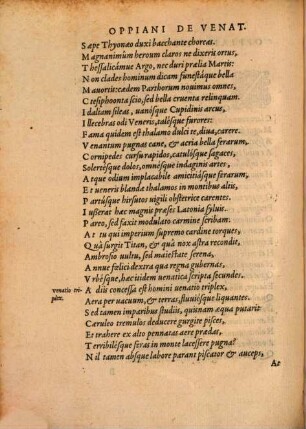 OPPIANI DE VENAT.
Sæpe Thyonæo duxi bacchante choreas.
Magnanimûm heroum claros ne dixeris ortus,
Thessalicámue Argo, nec duri prælia Martis:
Non clades hominum dicam funestáque bella
Mauortis: cædem Parthorum nouimus omnes,
Ctesiphonta scio, sed bella cruenta relinquam.
Idaliam sileas, uanósque Cupidinis arcus,
Illecebras odi Veneris, talésque furores:
Fama quidem est thalamo dulci te, diua, carere.
Venantum pugnas cane, & acria bella ferarum,
Cornipedes cursu rapidos, catulósque sagaces,
Solertésque dolos, omnísque indaginis artem,
Atque odium implacabile amicitiásque ferarum,
Et ueneris blandæ thalamos in montibus altis,
Partúsque hirsutos uigili obstetrice carentes.
Iusserat hæc magnis præses Latonia syluis.
Pareo, sed faxit modulato carmine scribam.
At tu qui imperium supremo cardine torques,
Quà surgis Titan, & quà nox astra recondit,
Ambrosio uultu, sed maiestate serena,
Annue felici dextra qua regna gubernas,
Vrbésque, hæc iisdem uenatica scripta secundes.
venatio triplex.
A diis concessa est homini uenatio triplex,
Aera per uacuum, & terras, fluuiósque liquantes.
Sed tamen imparibus studiis, quinam æqua putarit
Cæruleo tremulos deducere gurgite pisces,
Et trahere ex alto pennatas aere prædas,
Terribilésque feras in monte lacessere pugna?
Nil tamen absque labore parant piscator & auceps,
At